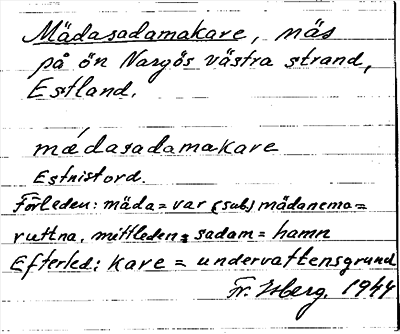 Mädasadamakare, näs
på ön Nargös västra strand,
Estland.
mädasadamakare
Estnist ord.
Förleden: mäda = var (sub) mädanema =
ruttna, mittleden: sadam = hamn
Efterled: kare = undervattensgrund
Fr. Isberg. 1944